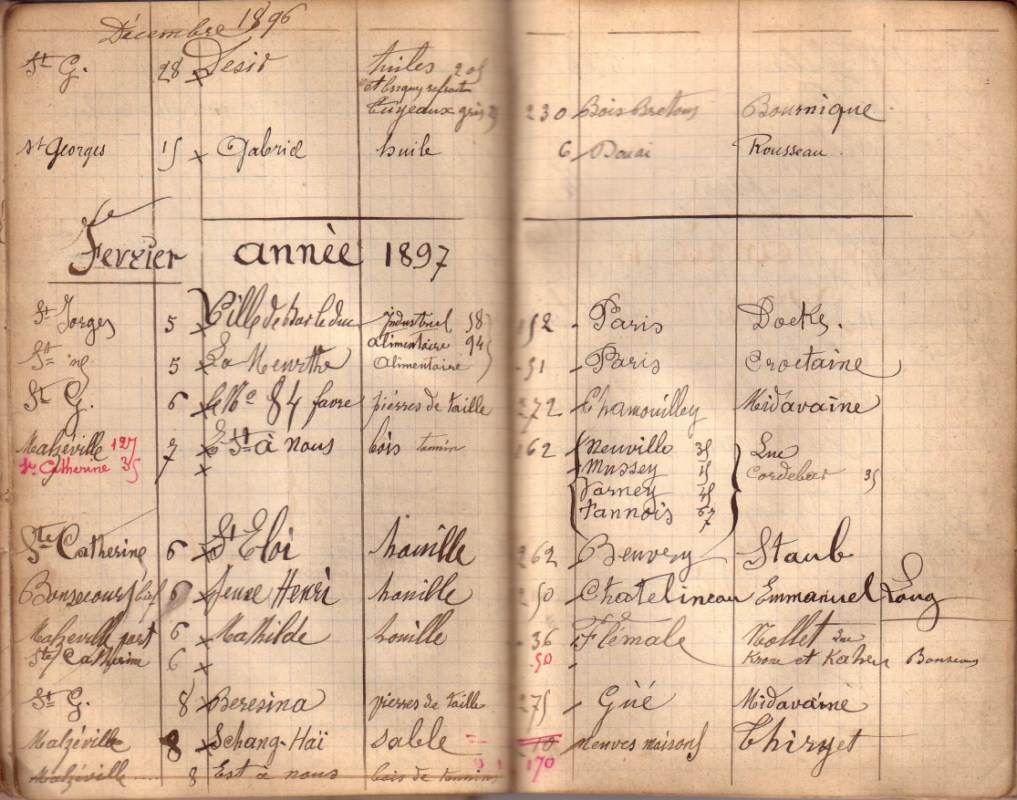 Décembre 1896
St G. 28 Desir tuiles 205
et briques refract
tuyeaux grès 25 230 Bois Bretons Bournique
St Georges 15 Gabriel huile 6 Douai Rousseau
Fevrier année 1897
St Jorges 5 Ville de Bar le duc industriel 58 152 Paris Docks.
alimentaire 94
St 5 La Meurthe alimentaire 51 Paris Croctaine
St G. 6 84 favre pièrres de taille 272 Chamouilley Midavaine
Malzéville 127 7 Est à nous bois tannin 162 Neuville 35 Luc
Ste Catherine 35 Mussey 15 Cordebar 35
Varney 45
Tannois 67
7
Ste Catherine 6 St Eloi houille 262 Benvery Staub
Bonsecours bief 6 Jeune Henri houille 250 Chatelineau Emmanuel Long
Malzéville part 6 Mathilde houille 36 Flémale Nollet
Ste Catherine 6 50 et Kahen Bonsecours
St G. 8 Beresina pierres de taille 275 Güé Midavaine
Malzéville 8 Schang-Haï sable 170 neuves maisons Thiryet
Malzéville 8 Est à nous bois de tannins 170